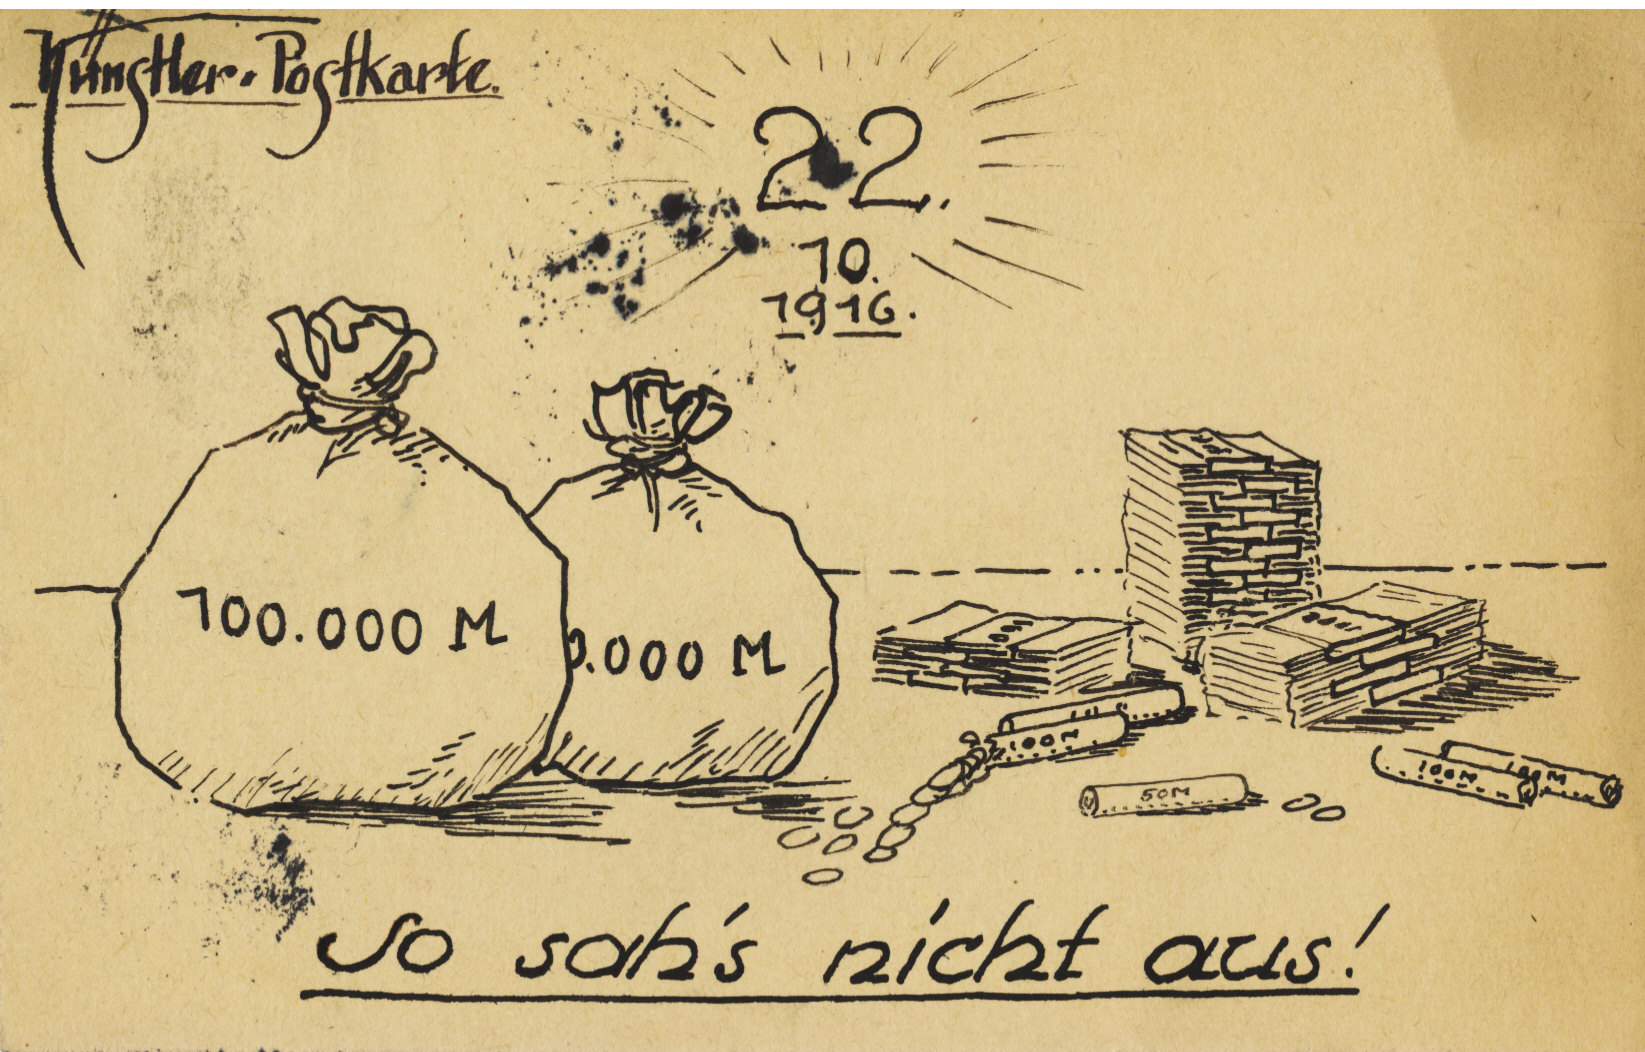 Künstler-Postkarte.
22.
10.
1916.
100.000 M
0.000 M
100M
50M
100M
100M
So sah's nicht aus!